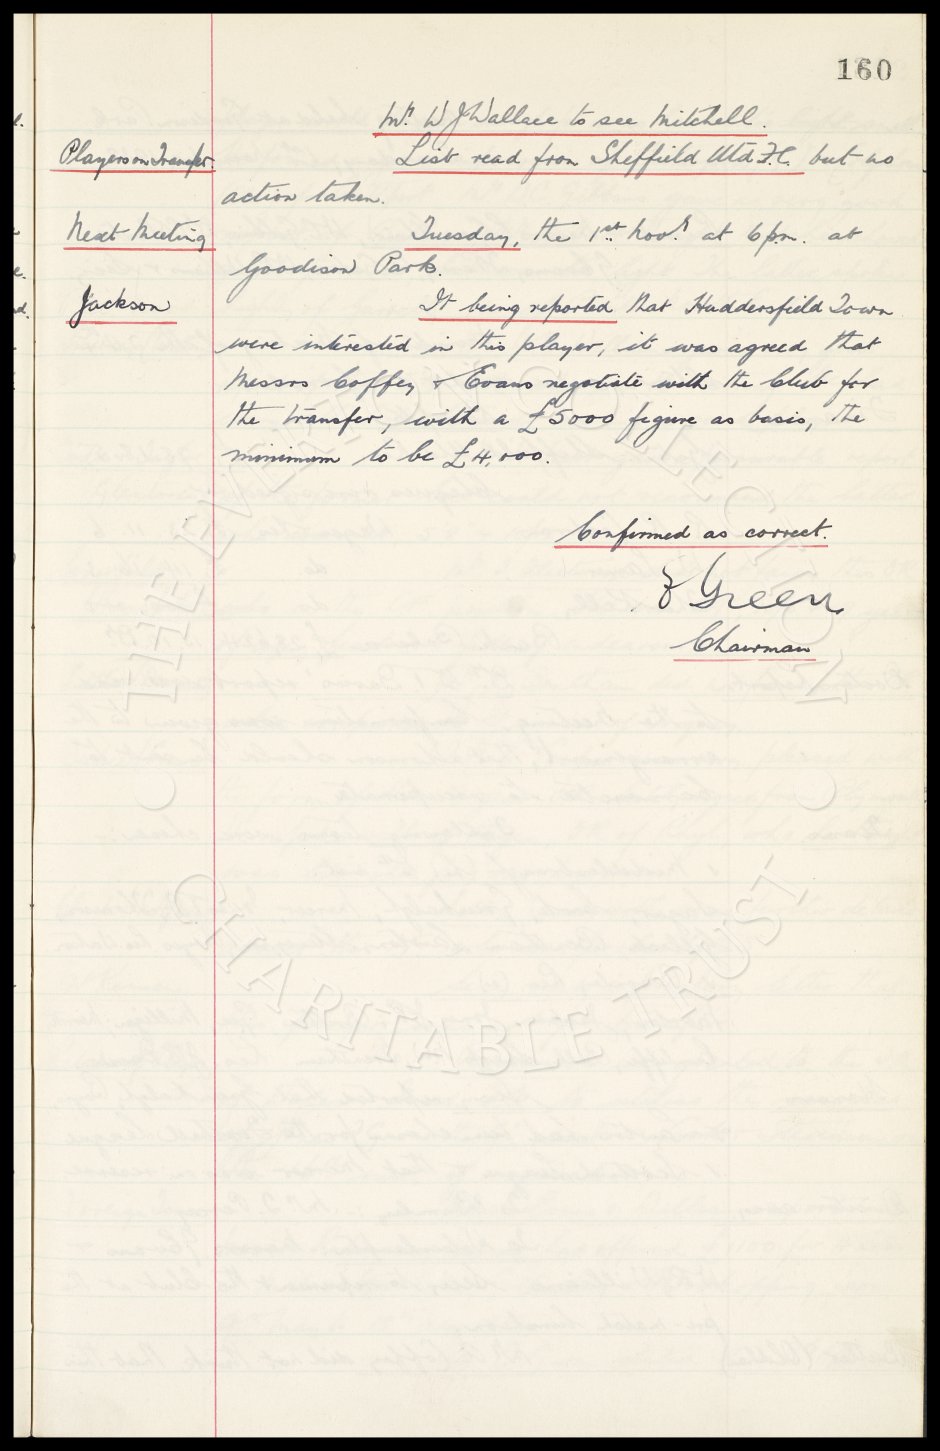 160
Mr. W J Wallace to see Mitchell.
Players on Transfer. List read from Sheffield Utd. F.C. but no
action taken.
Next Meeting Tuesday, the 1st. Novr. at 6 p.m. at
Goodison Park.
Jackson It being reported that Huddersfield Town
were interested in this player, it was agreed that
Messrs Coffey & Evans negotiate with the Club for
the transfer, with a £5000 figure as basis, the
minimum to be £4,000.
Confirmed as correct.
Green
Chairman
THE EVERTON COLLECTION
CHARITABLE TRUST